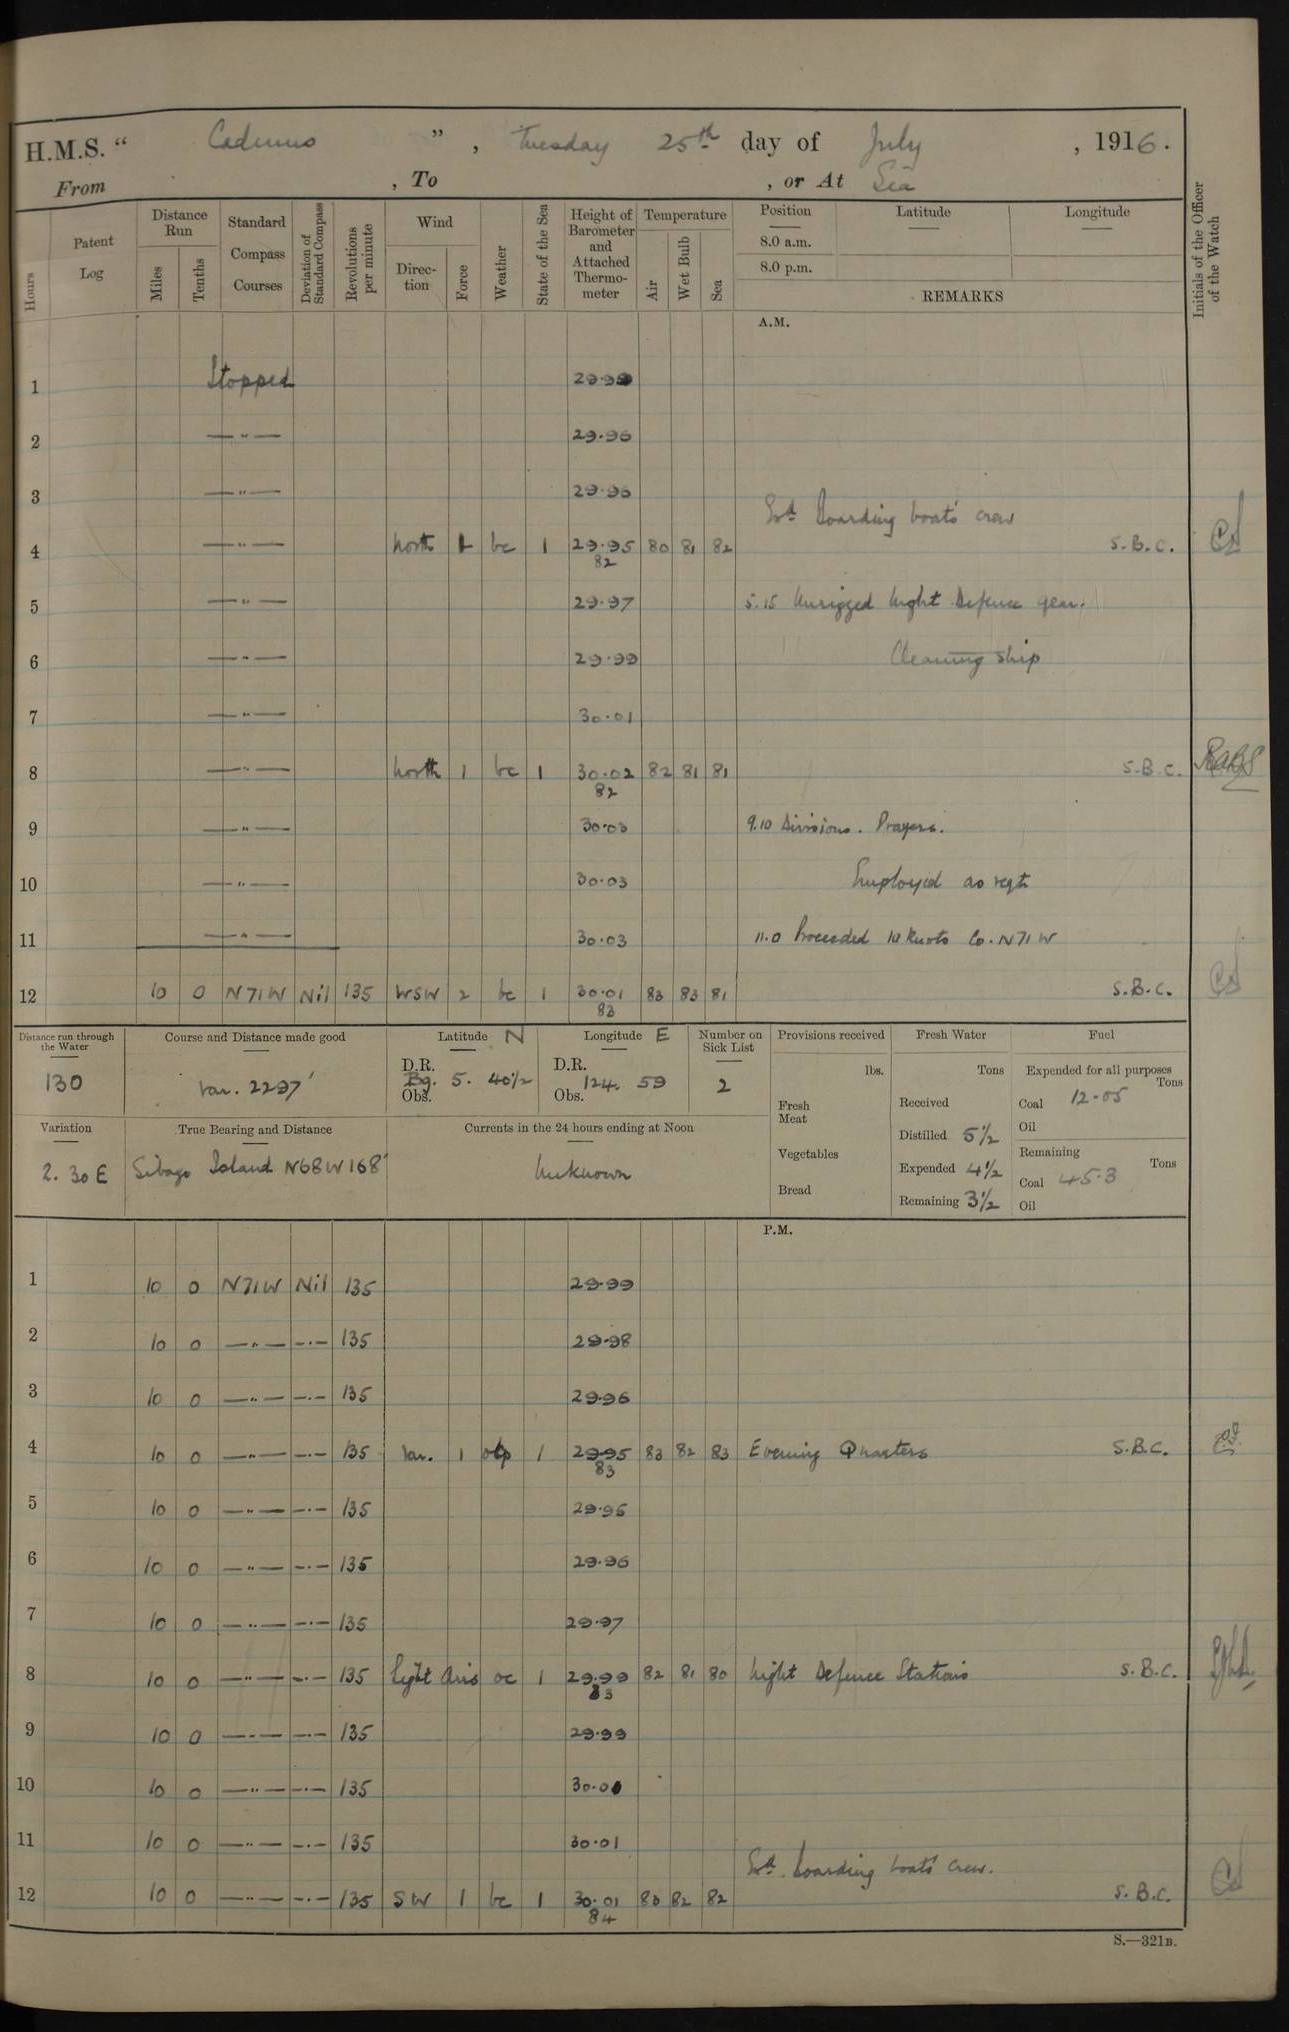 H.M.S. “ Cadmus ”, Tuesday 25th day of July , 1916.
From , To , or At Sea
Hours
Patent Log
Distance Run
Miles Tenths
Standard Compass Courses
Deviation of Standard Compass
Revolutions per minute
Wind
Direction Force
Weather
State of the Sea
Height of Barometer and Attached Thermometer
Temperature
Air Wet Bulb Sea
Position Latitude Longitude
8.0 a.m.
8.0 p.m.
REMARKS
Initials of the Officer of the Watch
A.M.
1 Stopped 29.99
2 —"— 29.96
3 —"— 29.96
Exd. boarding boats' crew
4 —"— North 1 bc 1 29.95 80 81 82 S.B.C.
82
5 —"— 29.97 5.15 Unrigged Night Defence gear.
6 —"— 29.99 Cleaning ship
7 —"— 30.01
8 —"— North 1 bc 1 30.02 82 81 81 S.B.C.
82
9 —"— 30.03 9.10 Divisions. Prayers.
10 —"— 30.03 Employed as reqt
11 —"— 30.03 11.0 Proceeded 10 knots Co. N71W
12 10 0 N71W Nil 135 WSW 2 bc 1 30.01 83 83 81 S.B.C.
83
Distance run through the Water
130
Course and Distance made good
Var. 2297'
Latitude N
D.R.
Bg. 5. 40½
Obs.
Longitude E
D.R.
124. 59
Obs.
Number on Sick List
2
Provisions received
lbs.
Fresh Meat
Vegetables
Bread
Fresh Water
Tons
Received
Distilled 5½
Expended 4½
Remaining 3½
Fuel
Expended for all purposes
Tons
Coal 12.05
Oil
Remaining
Tons
Coal 45.3
Oil
Variation
2. 30 E
True Bearing and Distance
Sibago Island N68W 168'
Currents in the 24 hours ending at Noon
Unknown
P.M.
1 10 0 N71W Nil 135 29.99
2 10 0 —"— —"— 135 29.98
3 10 0 —"— —"— 135 29.96
4 10 0 —"— —"— 135 Var. 1 1 29.95 83 82 83 Evening Quarters S.B.C.
83
5 10 0 —"— —"— 135 29.95
6 10 0 —"— —"— 135 29.96
7 10 0 —"— —"— 135 29.97
8 10 0 —"— —"— 135 light airs oc 1 29.99 82 81 80 Night Defence Stations S.B.C.
83
9 10 0 —"— —"— 135 29.99
10 10 0 —"— —"— 135 30.01
11 10 0 —"— —"— 135 30.01
Exd. boarding boats' crew.
12 10 0 —"— —"— 135 SW 1 bc 1 30.01 83 82 82 S.B.C.
84
S.—321B.